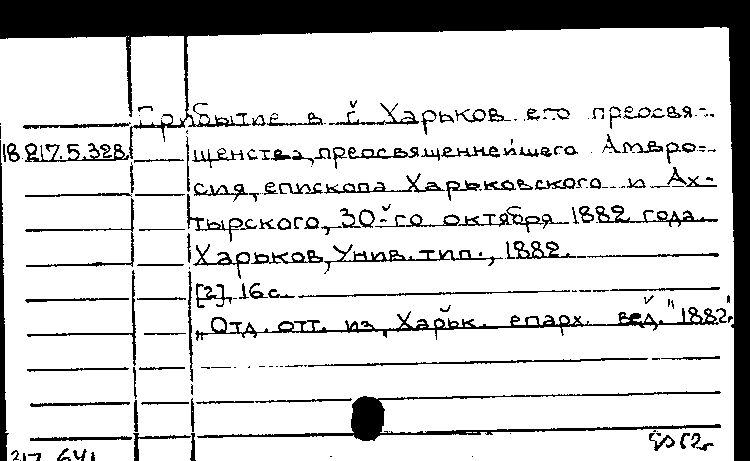 Прибытие в г. Харьков его преосвя-
18.217.5.328 щенства, преосвященнейшего Амвро-
сия, епископа Харьковского и Ах-
тырского, 30-го октября 1882 года.
Харьков, Унив. тип., 1882.
[2], 16 с.
„Отд. отт. из „Харьк. епарх. вед." 1882".